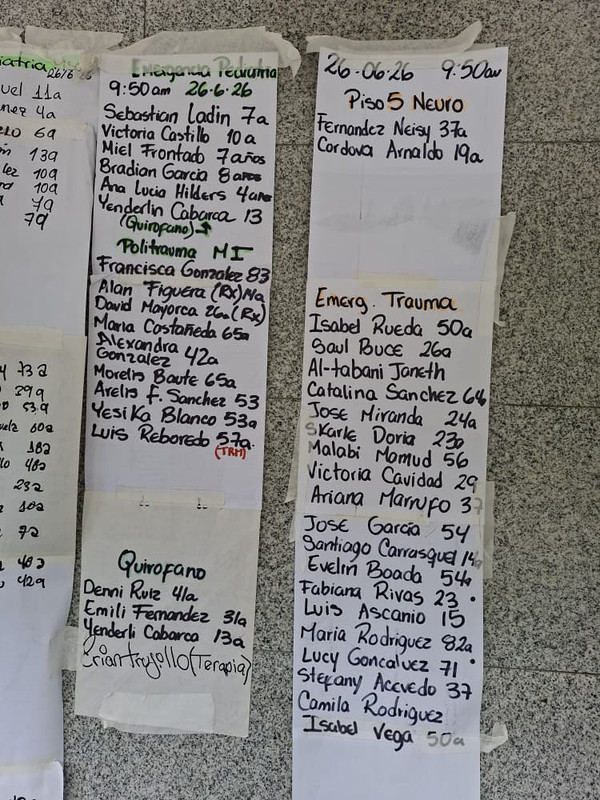 iatria
26/6
uel 11a
nez 4a
6a
13a
lez 10a
10a
7a
7a
73a
39a
53a
60a
18a
48a
23a
10a
7a
40a
42a
Emergencia Pediatria
9:50am 26.6.26
Sebastian Ladin 7a
Victoria Castillo 10a
Miel Frontado 7años
Bradian Garcia 8años
Ana Lucia Hilders 4años
Yenderlin Cabarca 13
(Quirofano)
Politrauma MI
Francisca Gonzalez 83
Alan Figuera (Rx) Na
David Mayorca 26a (Rx)
Maria Castañeda 65a
Alexandra 42a
Gonzalez
Morelis Baute 65a
Arelis F. Sanchez 53
Yesika Blanco 53a
Luis Reboredo 57a
(TRM)
Quirofano
Denni Ruiz 41a
Emili Fernandez 31a
Yenderli Cabarca 13a
Crian trujollo (Terapia)
26.06.26 9:50am
Piso 5 Neuro
Fernandez Neisy 37a
Cordova Arnaldo 19a
Emerg. Trauma
Isabel Rueda 50a
Saul Buce 26a
Al-tabani Janeth
Catalina Sanchez 64
Jose Miranda 24a
Skarle Doria 23a
Malabi Mamud 56
Victoria Cavidad 29
Ariana Marrufo 37
Jose Garcia 54
Santiago Carrasquel 14a
Evelin Boada 54a
Fabiana Rivas 23
Luis Ascanio 15
Maria Rodriguez 82a
Lucy Goncalvez 71
Stefany Acevedo 37
Camila Rodriguez
Isabel Vega 50a